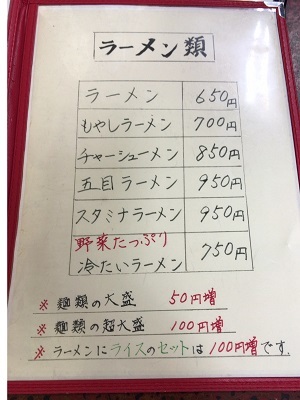 ラーメン類
ラーメン 650円
もやしラーメン 700円
チャーシューメン 850円
五目ラーメン 950円
スタミナラーメン 950円
野菜たっぷり
冷たいラーメン 750円
※ 麺類の大盛 50円増
※ 麺類の超大盛 100円増
※ ラーメンにライスのセットは100円増です。